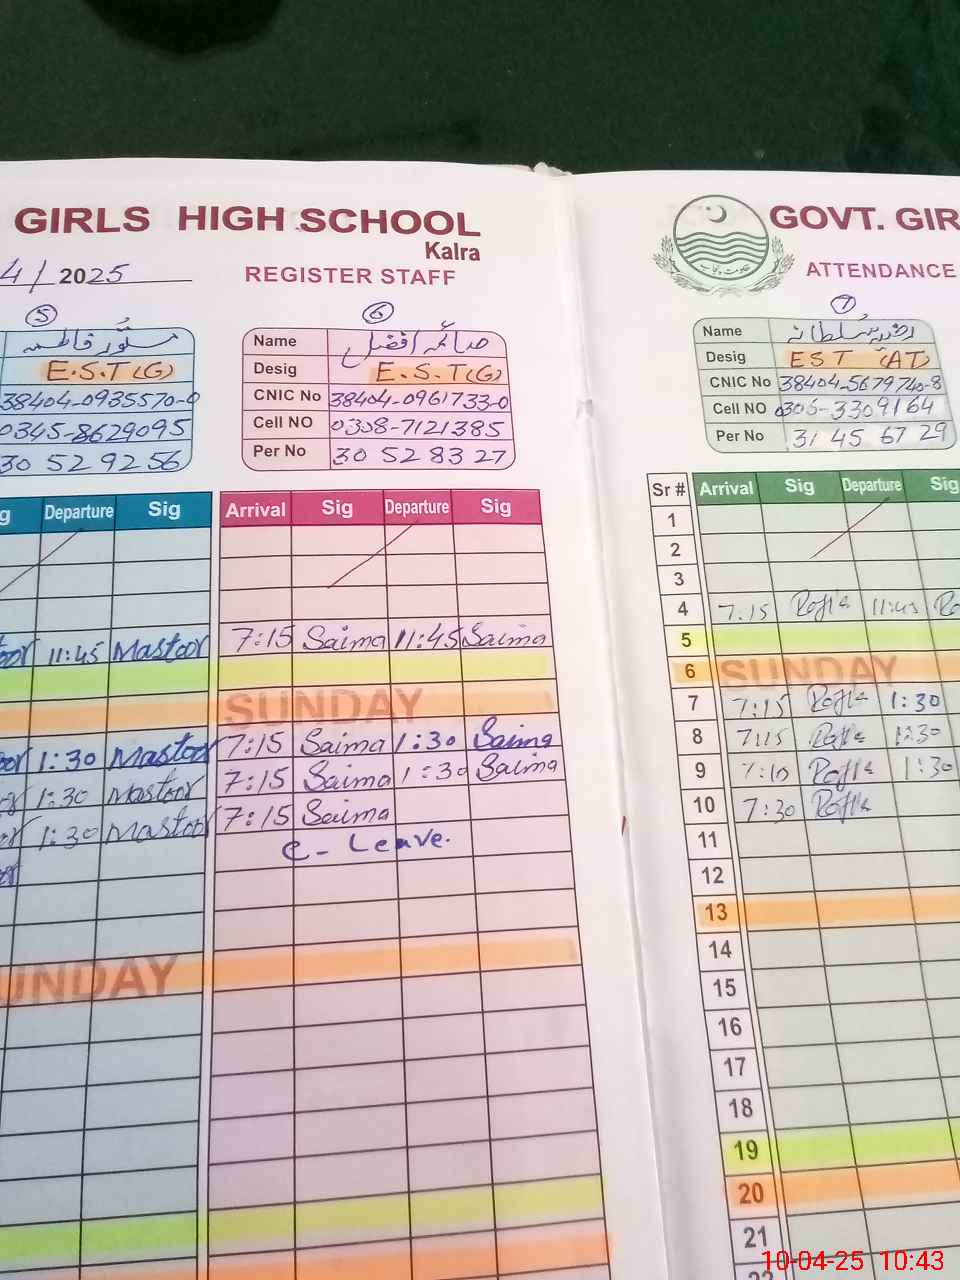 GIRLS HIGH SCHOOL
Kalra
4/ 2025 REGISTER STAFF
5
مستور فاطمہ
E.S.T(G)
38404-0935570-0
0345-8629095
30 52 92 56
6
Name صائمہ افضل
Desig E.S.T(G)
CNIC No 38404-0961733-0
Cell NO 0308-7121385
Per No 30 52 83 27
g Departure Sig
Arrival Sig Departure Sig
11:45 Mastoor
7:15 Saima 11:45 Saima
SUNDAY
1:30 Mastoor 7:15 Saima 1:30 Saima
1:30 Mastoor 7:15 Saima 1:30 Saima
1:30 Mastoor 7:15 Saima
C- Leave.
SUNDAY
GOVT. GIR
ATTENDANCE
7
Name سلطانہ
Desig EST (AT)
CNIC No 38404-5679740-8
Cell NO 0306-3309164
Per No 31 45 67 29
Sr # Arrival Sig Departure Sig
1
2
3
4 7:15 11:45
5
6 SUNDAY
7 7:15 1:30
8 7:15 1:30
9 7:15 1:30
10 7:30
11
12
13
14
15
16
17
18
19
20
21
22
10-04-25 10:43